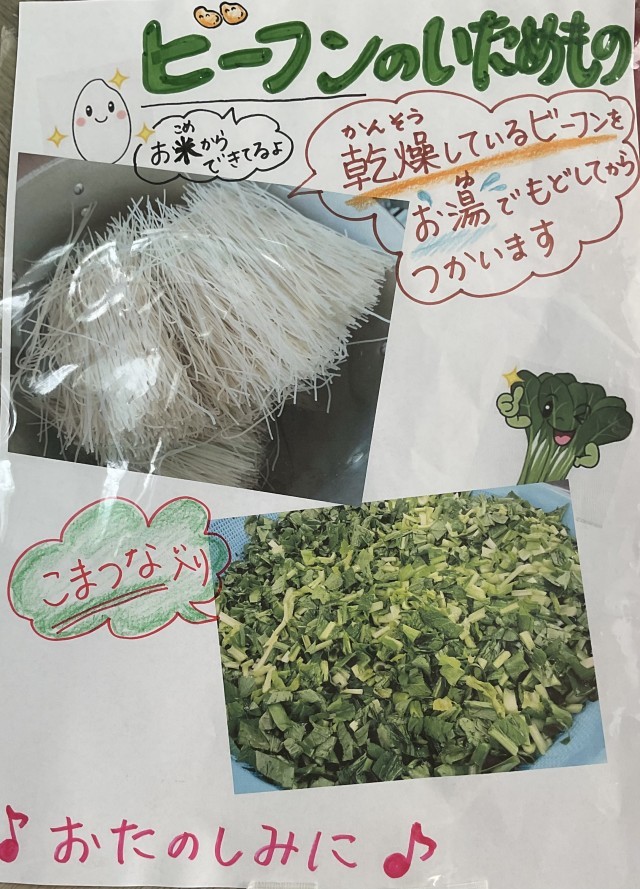 ビーフンのいためもの
こめ
お米から
できてるよ
かんそう
乾燥しているビーフンを
ゆ
お湯でもどしてから
つかいます
こまつな入り
♪おたのしみに♪